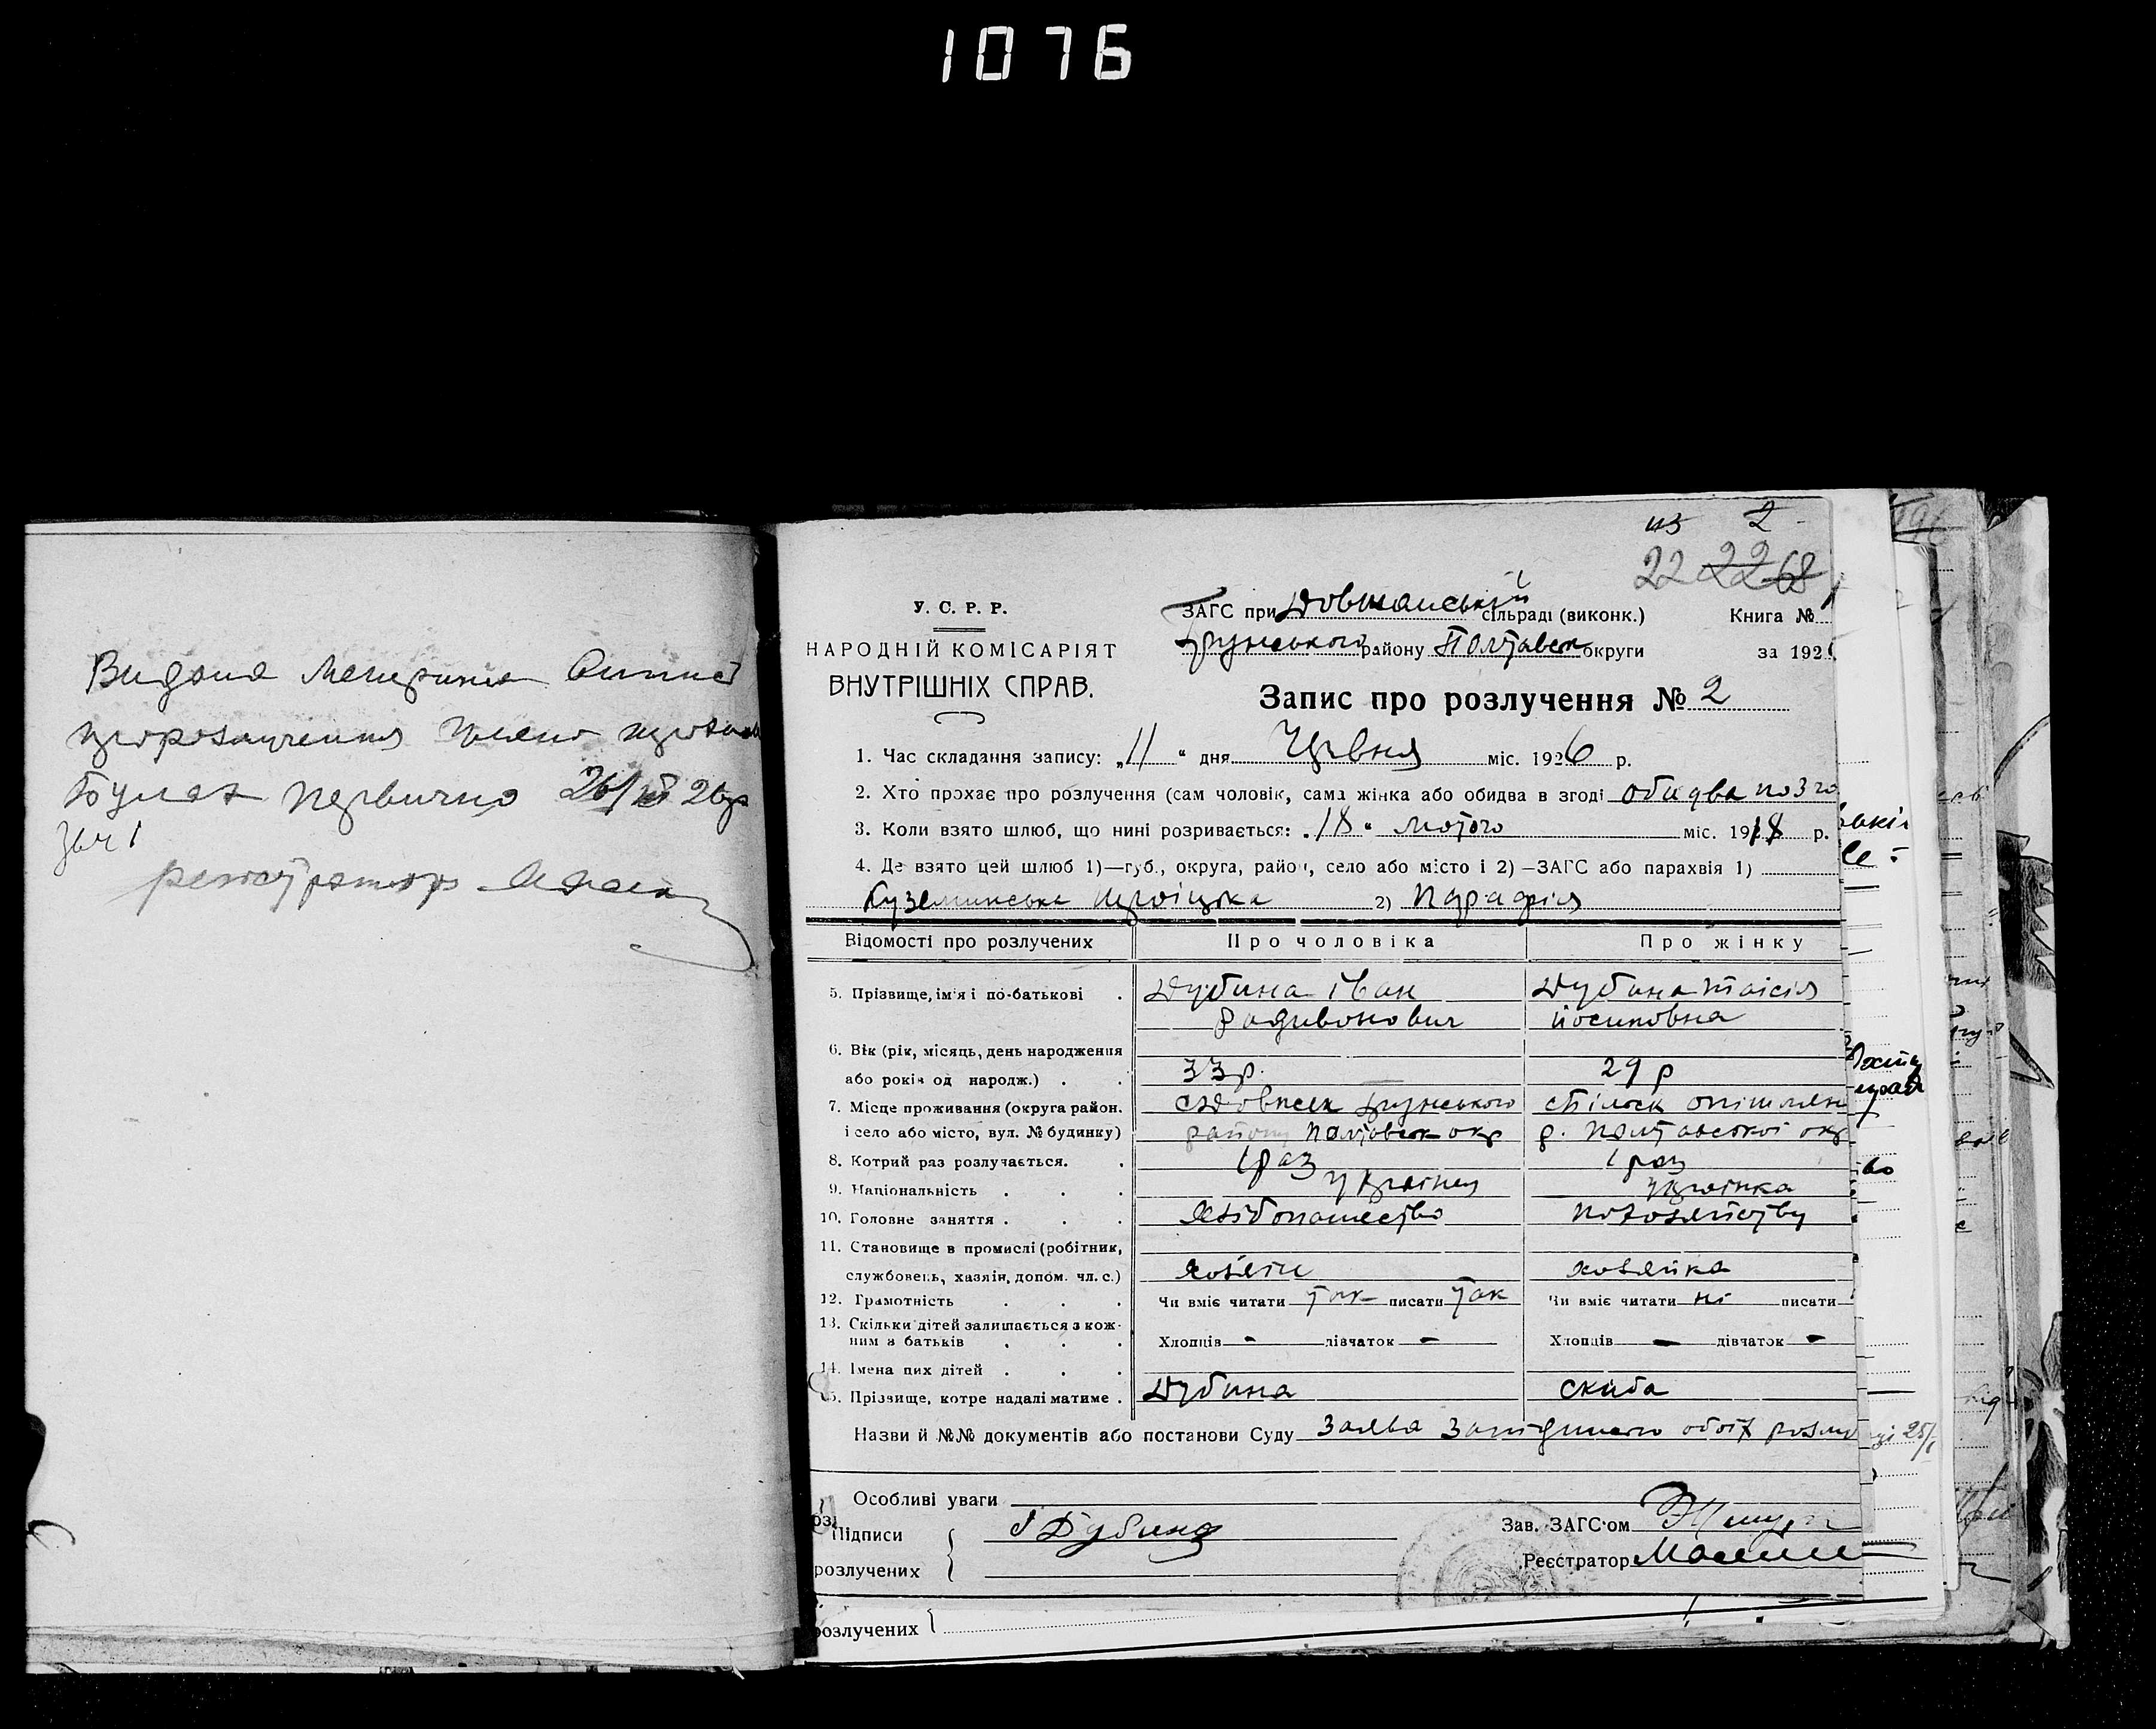 1076
Видана
26/
регистратор
из 2
22 22 68
У. С. Р. Р.
НАРОДНІЙ КОМІСАРІЯТ
ВНУТРІШНІХ СПРАВ.
ЗАГС при Довжанській сільраді (виконк.) Книга №
Грунського району Полтавськ округи за 192
Запис про розлучення № 2
1. Час складання запису: „11“ дня Червня міс. 1926 р.
2. Хто прохає про розлучення (сам чоловік, сама жінка або обидва в згоді обидва по зго
3. Коли взято шлюб, що нині розривається: „18“ лютого міс. 1918 р.
4. Де взято цей шлюб 1)—губ., округа, район, село або місто і 2)—ЗАГС або парахвія 1)
Куземинська троіцька 2) парафія
Відомості про розлучених Про чоловіка Про жінку
5. Прізвище, ім'я і по-батькові Дубина Іван Дубина Таісія
Радивонович йосиповна
6. Вік (рік, місяць, день народження
або років од народж.) 33 р. 29 р
7. Місце проживання (округа район, Грунського
і село або місто, вул. № будинку) району Полтавськ окр р. Полтавської окр
8. Котрий раз розлучається. 1 раз 1 раз
9. Національність українец українка
10. Головне заняття хлібопашество
11. Становище в промислі (робітник,
службовець, хазяїн, допом. чл. с.) хозяін хозяйка
12. Грамотність Чи вміє читати так писати так Чи вміє читати ні писати
13. Скільки дітей залишається з кож-
ним з батьків Хлопців - дівчаток - Хлопців - дівчаток -
14. Імена цих дітей
15. Прізвище, котре надалі матиме Дубина Скиба
Назви й №№ документів або постанови Суду Заява за підписом обоїх розлу
Особливі уваги
Підписи І Дубина Зав. ЗАГС'ом
розлучених Реєстратор
розлучених